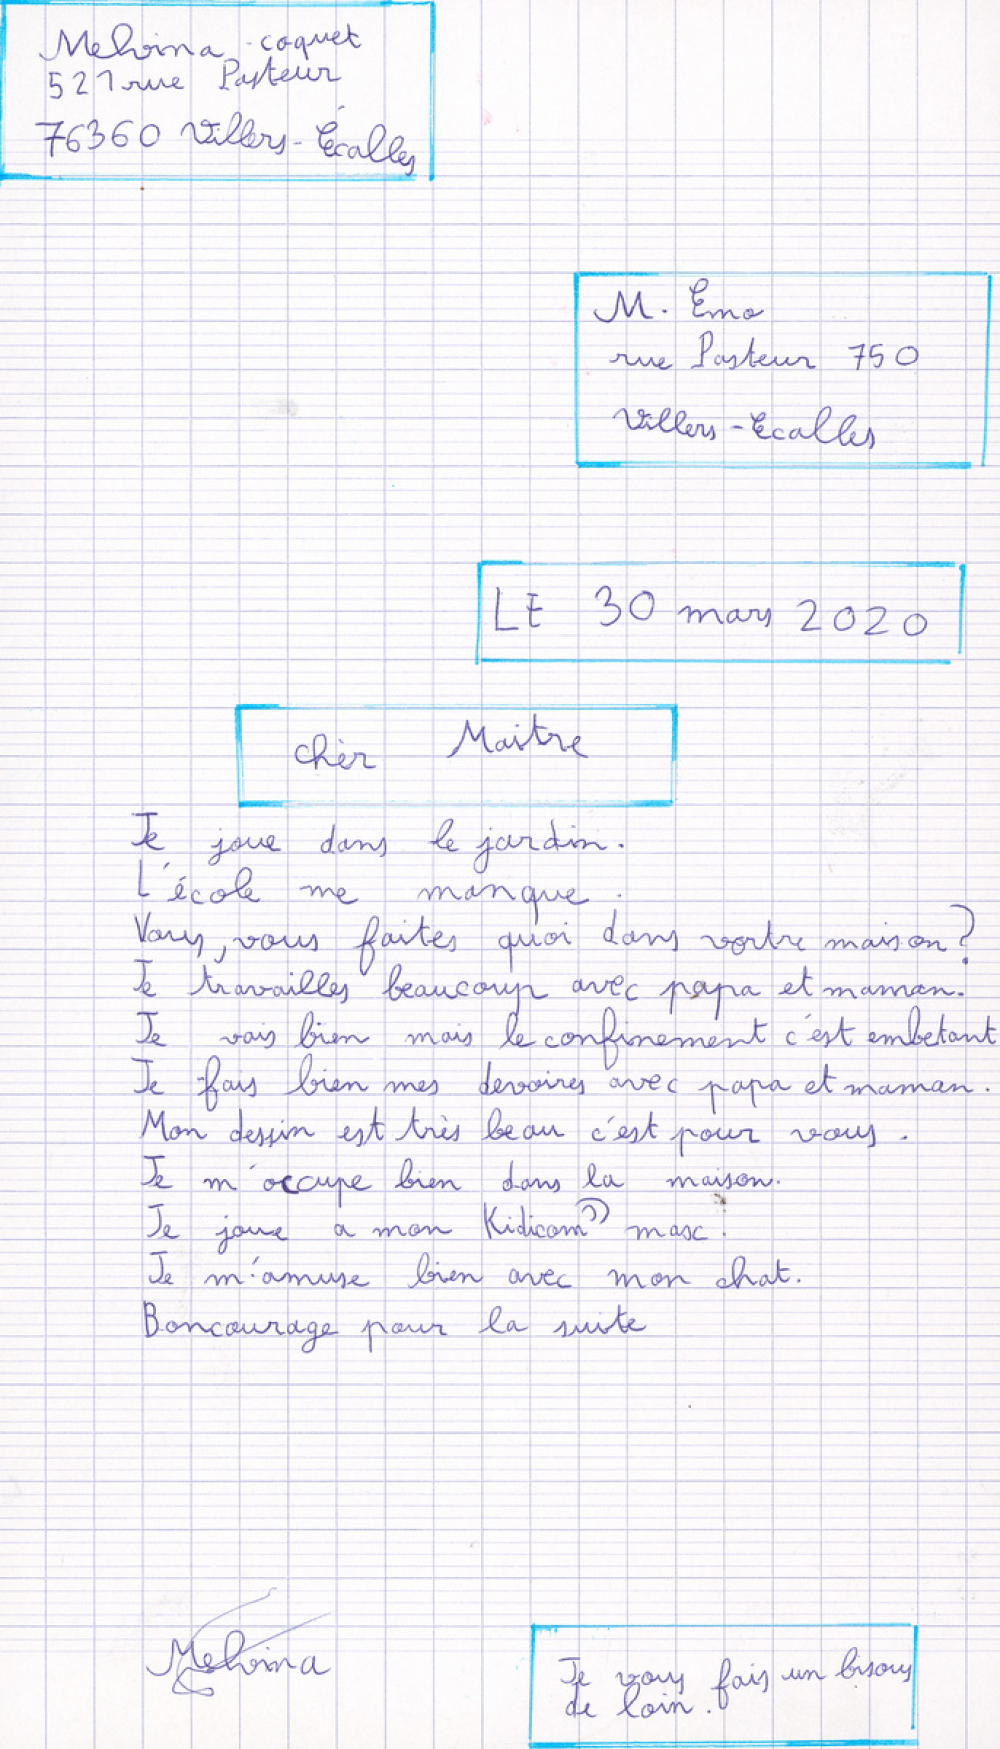 Melvina coquet
521 rue Pasteur
76360 Villers-Écalles
M. Emo
rue Pasteur 750
Villers-Ecalles
LE 30 mars 2020
chèr Maitre
Je joue dans le jardin.
L'école me manque.
Vous, vous faites quoi dans vortre maison?
Je travailles beaucoup avec papa et maman.
Je vais bien mais le confinement c'est embetant
Je fais bien mes devoires avec papa et maman.
Mon dessin est très beau c'est pour vous.
Je m'occupe bien dans la maison.
Je joue a mon Kidicom masc.
Je m'amuse bien avec mon chat.
Boncourage pour la suite
Melvina
Je vous fais un bisous
de loin.